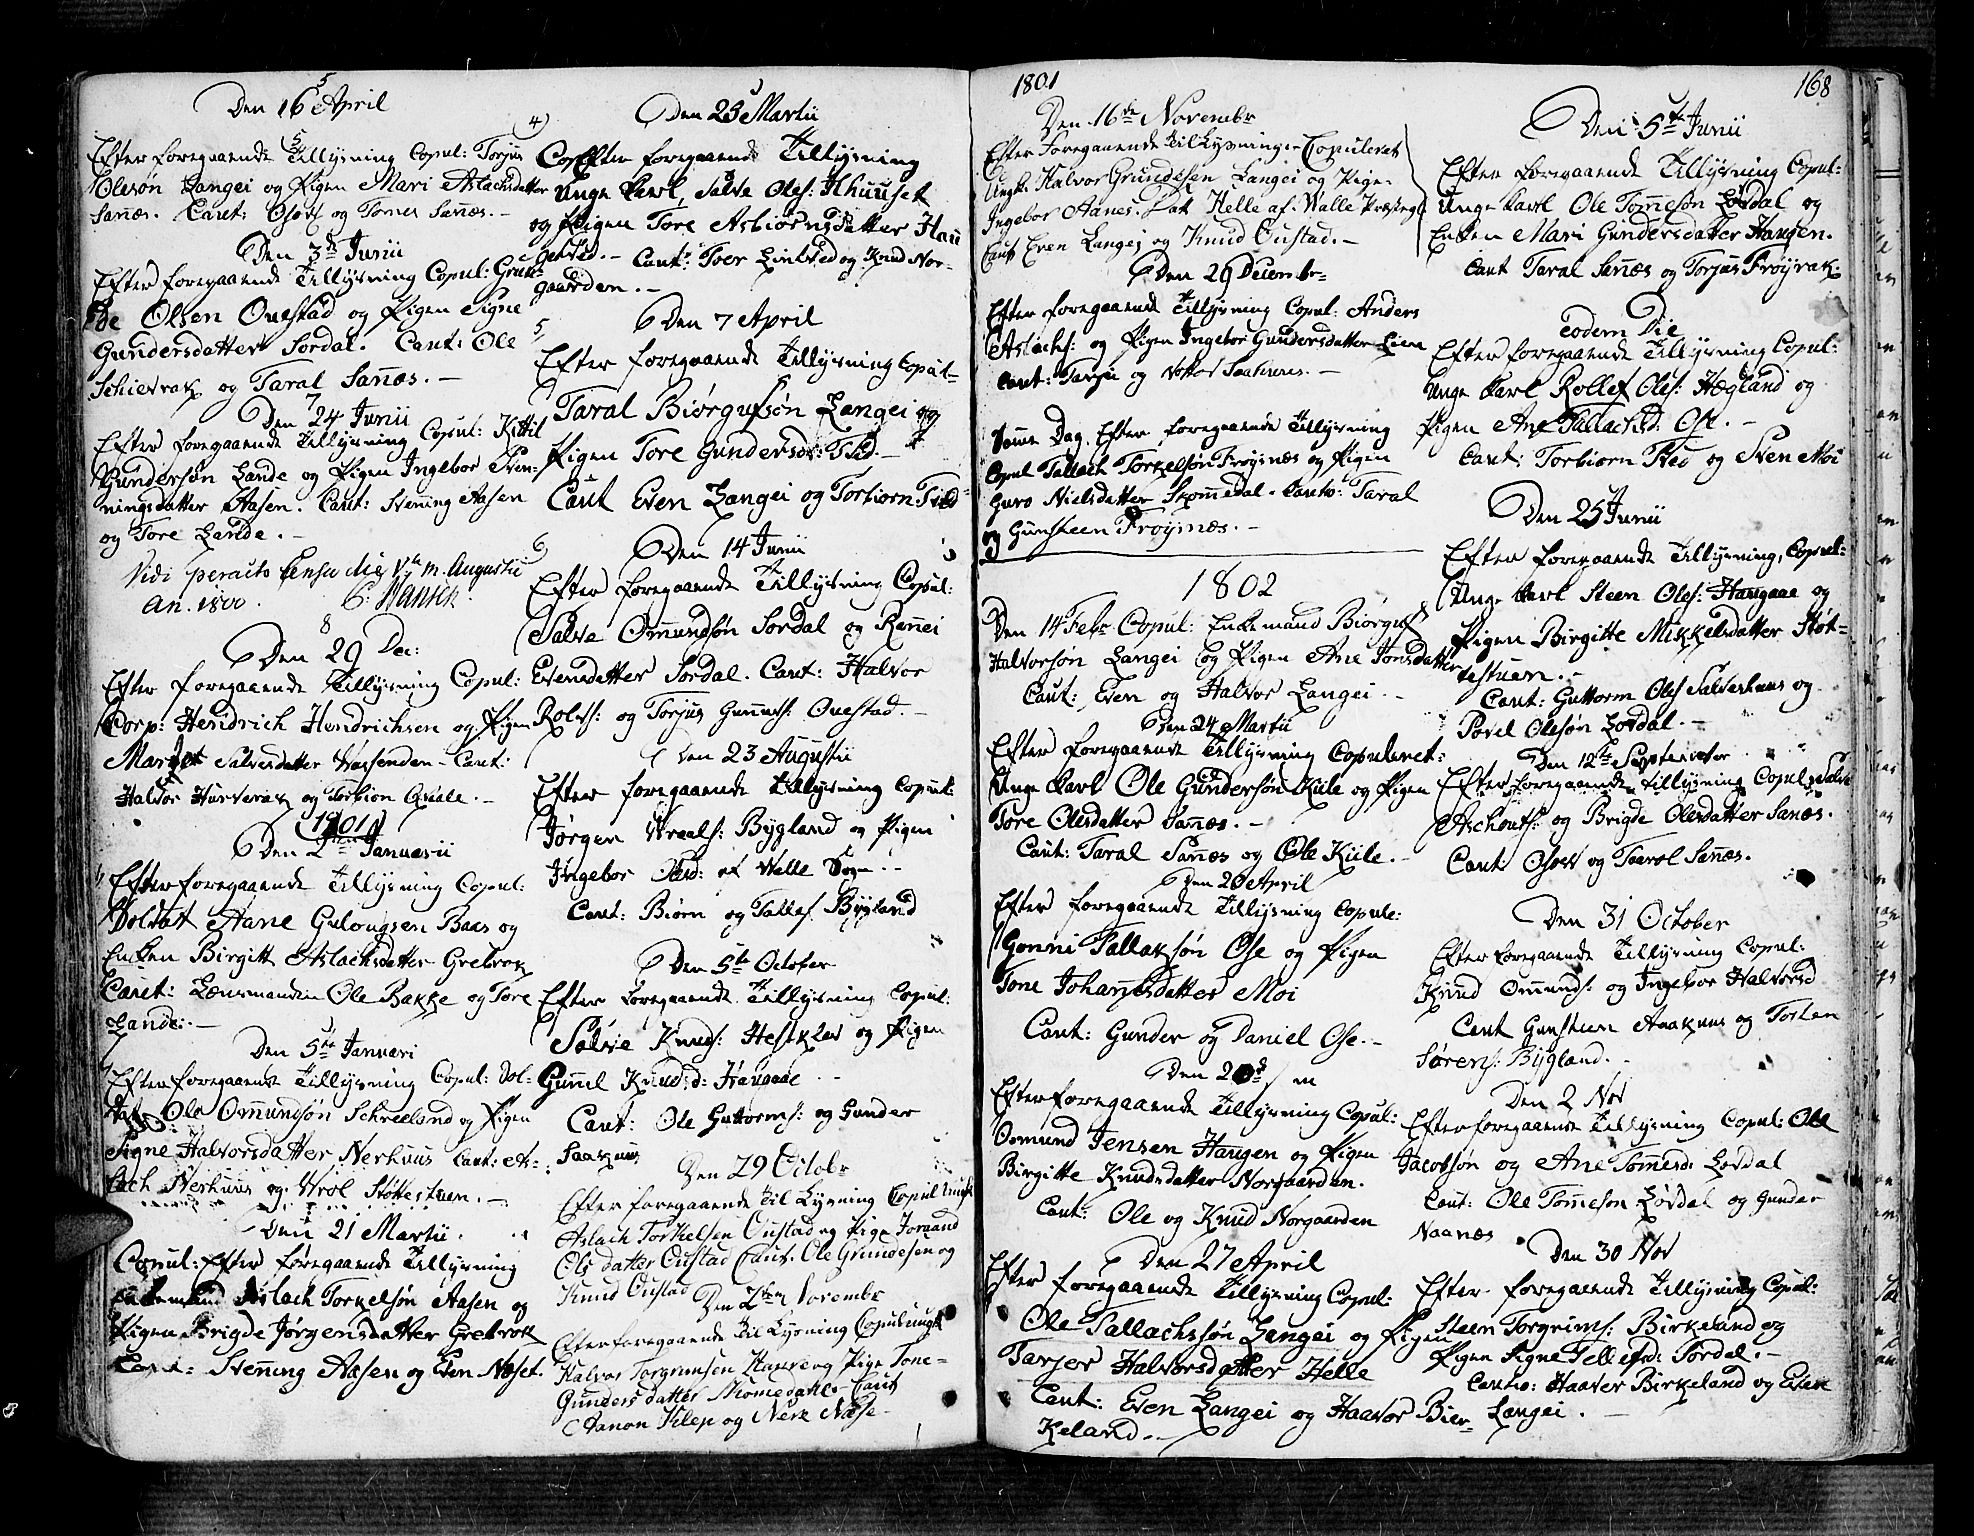 5
Den 16 April
Efter foregaaende Tillysning Copul: Torjus
Olesøn Langei og Pigen Mari Aslachsdatter
Sanæs. Caut: Osow og Tomes Sanæs.
Den 3 Junii
Efter foregaaende Tillysning Copul: Grun-
de Olsen Ouestad og Pigen Signe
Gundersdatter Sordal. Caut: Ole
Schievrak og Taral Sanæs.
7
Den 24 Junii
Efter foregaaende Tillysning Copul: Kittil
Gundersøn Lande og Pigen Ingebor Sven-
ningsdatter Aasen. Caut: Svening Aasen
og Tore Lande.
Vidi peracto Censu die V m. Augusti
An. 1800. C. Hansen
8
Den 29 Dec:
Efter foregaaende Tillysning Copul:
Corp: Hendrich Hendrichsen og Pigen
Margit Salvesdatter Vassenden - Caut:
Halvor Hurverak og Torbion Qvale.
1801
Den 2 Januarii
Efter foregaaende Tillysning Copul:
Soldat Aane Gulougsen Baas og
Enken Birgitt Aslachsdatter Grebrok
Caut: Lænsmanden Ole Bakke og Tore
Lande.
Den 5te Januari
Efter foregaaende Tillysning Copul: Sol-
dat Ole Omundsøn Schreeland og Pigen
Signe Halvorsdatter Nerhuus Caut: As-
lach Nerhuus og Wrol Støttestuen.
Den 21 Martii
Copul: Efter foregaaende Tillysning
Enkemand Aslach Torkelsøn Aasen og
Pigen Brigde Jørgensdatter Grebrok
Caut: Svenning Aasen og Even Næset.
4)
Den 23 Martii
Efter foregaaende Tillysning
Unge Karl, Salve Oles: Khuuset
og Pigen Tore Asbiørnsdatter Hau
gested. Caut: Toer Lintved og Knud Nor-
gaarden.
5
Den 7 April
Efter foregaaende Tillysning Copul-
Taral Biørgufsøn Langei og
Pigen Tore Gundersdr: Tved.
Caut Even Langei og Torbiorn Tved
6)
Den 14 Junii
Efter foregaaende Tillysning Copul:
Salve Omundsøn Sordal og Rannei
Evensdatter Sordal. Caut: Halvor
Rolvs: og Torjus Gunnuls: Ouestad.
Den 23 Augustii
Efter foregaaende Tillysning Copul:
Jørgen Wraals: Bygland og Pigen
Ingebor Olsd: af Walle Sogn.
Caut: Biørn og Tallef Bygland
Den 5te October
Efter foregaaende Tillysning Copul:
Salvie Knuds: Hestklev og Pigen
Gunnil Knudsd: Haugaae
Caut: Ole Guttorms: og Gunder
Saakuus
Den 29 Octobr
Efter foregaaende Til Lysning Copul
Aslach Torkelsen Oustad og Pige Joraand
Ols datter Oustad Caut. Ole Grundesen og
Knud Oustad
Den 2den Novembr
Efter foregaaende Til Lysning Copul ungk
Halvor Torgrimsen Hauve og Pige Tone
Gunders datter Skomedahl Caut
Aanon Kilep og Nere Næse
1801
Den 16de Novembr
Efter Foregaaende Til Lysninger Copuleret
Ungk: Halvor Grundesen Langei og Pige
Ingebor Aanes. Dat Helle af Walle Præsteg
Caut Even Langei og Knud Oustad.
Den 29 Decembr
Efter foregaaende Tillysning Copul: Anders
Aslachs: og Pigen Ingebor Gundersdatter Liem
Caut: Tarjei og Nottor Saahuus.
Same Dag. Efter foregaaende Tillysning
Copul Tallach Torkelsøn Frøysnæs og Pigen
Guro Nielsdatter Skomedal. Caut: Taral
og Gunsteen Frøysnæs.
1802
Den 14 Febr Copul: Enkemand Biørguf
Halvorsøn Langei og Pigen Ane Jonsdatter
Caut: Even og Halvor Langei.
Den 24 Martii
Efter foregaaende Tillysning Copuleret:
Unge Karl Ole Gundersøn Kiile og Pigen
Tore Olesdatter Sannæs.
Caut: Taral Sannæs og Ole Kiile.
Den 20 April
Efter foregaaende Tillysning Copul:
Gonni Tallaksøn Ose og Pigen
Tone Johannesdatter Moi
Caut: Gunder og Daniel Ose.
Efter foregaaende Tillysning Copul:
Osmund Jensen Haugen og Pigen
Birgitte Knudsdatter Norgaarden.
Caut: Ole og Knud Norgaarden
Den 27 April
Efter foregaaende Tillysning Copul:
Ole Tallachssøn Langei og Pigen
Tarjer Halvorsdatter Helle
Caut: Even Langei og Haavor Bier
keland.
168
Den 5te Junii
Efter foregaaende Tillysning Copul:
Unge Karl Ole Tommesøn Lordal og
Enken Mari Gundersdatter Haugen.
Caut Taral Sanæs og Torjus Frøyrak.
eodem Die
Efter foregaaende Tillysning Copul:
Unge Karl Rollef Oles: Hægland og
Pigen Ane Tallachsd: Ose.
Caut: Torbiorn Tved og Sven Moi
Den 25 Junii
Efter foregaaende Tillysning, Copul:
Unge Karl Steen Oles: Haugaae og
Pigen Birgitte Mikkelsdatter Støt-
testuen.
Caut: Guttorm Oles Salvehuus og
Povel Olesøn Lordal.
Den 12te September
Efter foregaaende Tillysning Copul Salve
Aschouts: og Brigde Olesdatter Sanæs.
Caut Osow og Taarol Sanæs.
Den 31 October
Efter foregaaende Tillysning Copul:
Knud Omunds: og Ingebor Halvorsd
Caut Gunsteen Aaakuus og Torlen
Sørens: Bygland.
Den 2 Nov
Efter foregaaende Tillysning Copul: Ole
Jacobsøn og Ane Tomesd: Lordal
Caut: Ole Tomeson Lordal og Gunder
Naanæs
Den 30 Nov
Efter foregaaende Tillysning Copul:
Steen Torgrims: Birkeland og
Pigen Signe Tellefsd: Sordal.
Caut: Haaver Birkeland og Even
Langei.